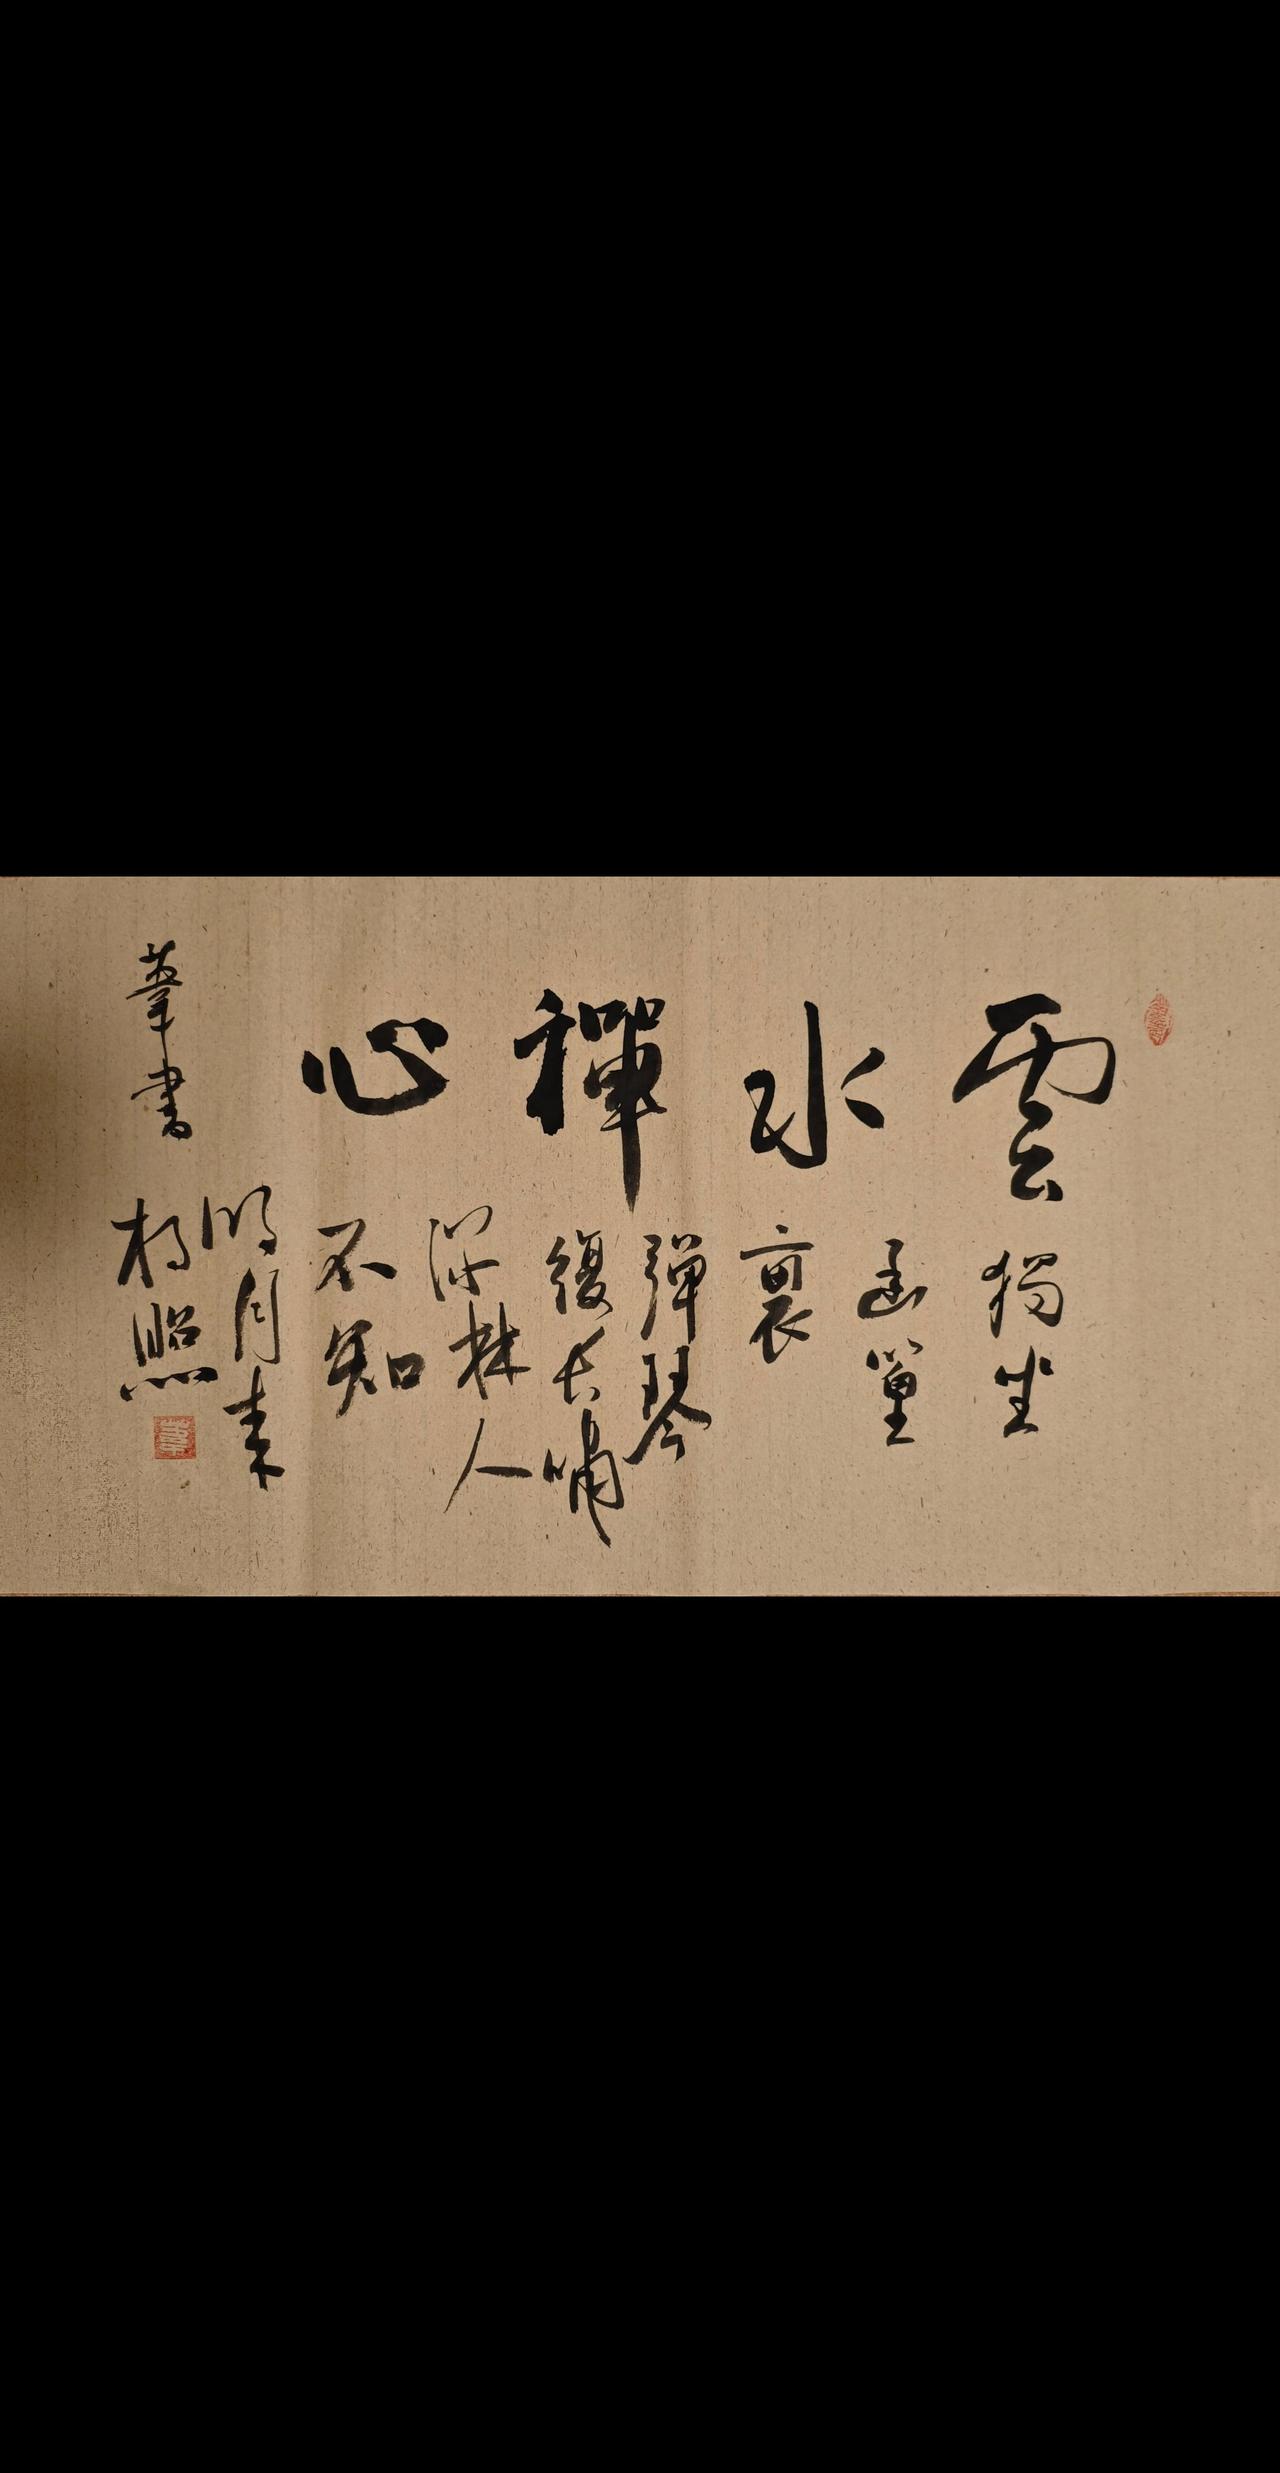 雲水禪心
獨坐
幽篁
裏
彈琴
復長嘯
深林人
不知
明月來
相照
書